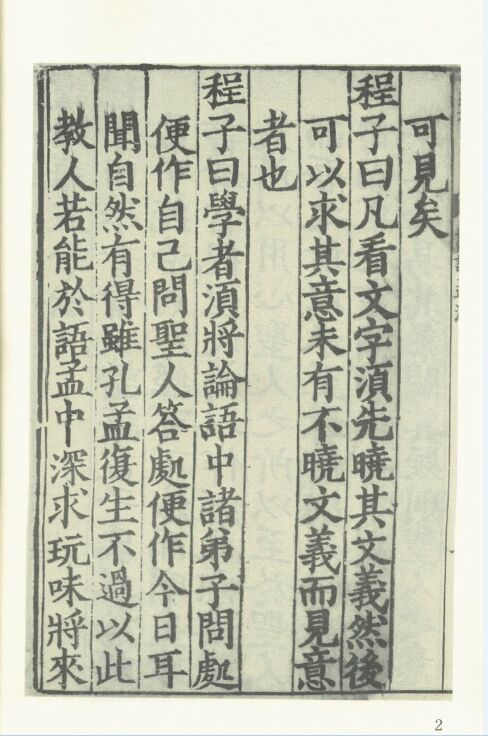 可見矣
程子曰凡看文字須先曉其文義然後
可以求其意未有不曉文義而見意
者也
程子曰學者須將論語中諸弟子問處
便作自己問聖人答處便作今日耳
聞自然有得雖孔孟復生不過以此
教人若能於語孟中深求玩味將來
2